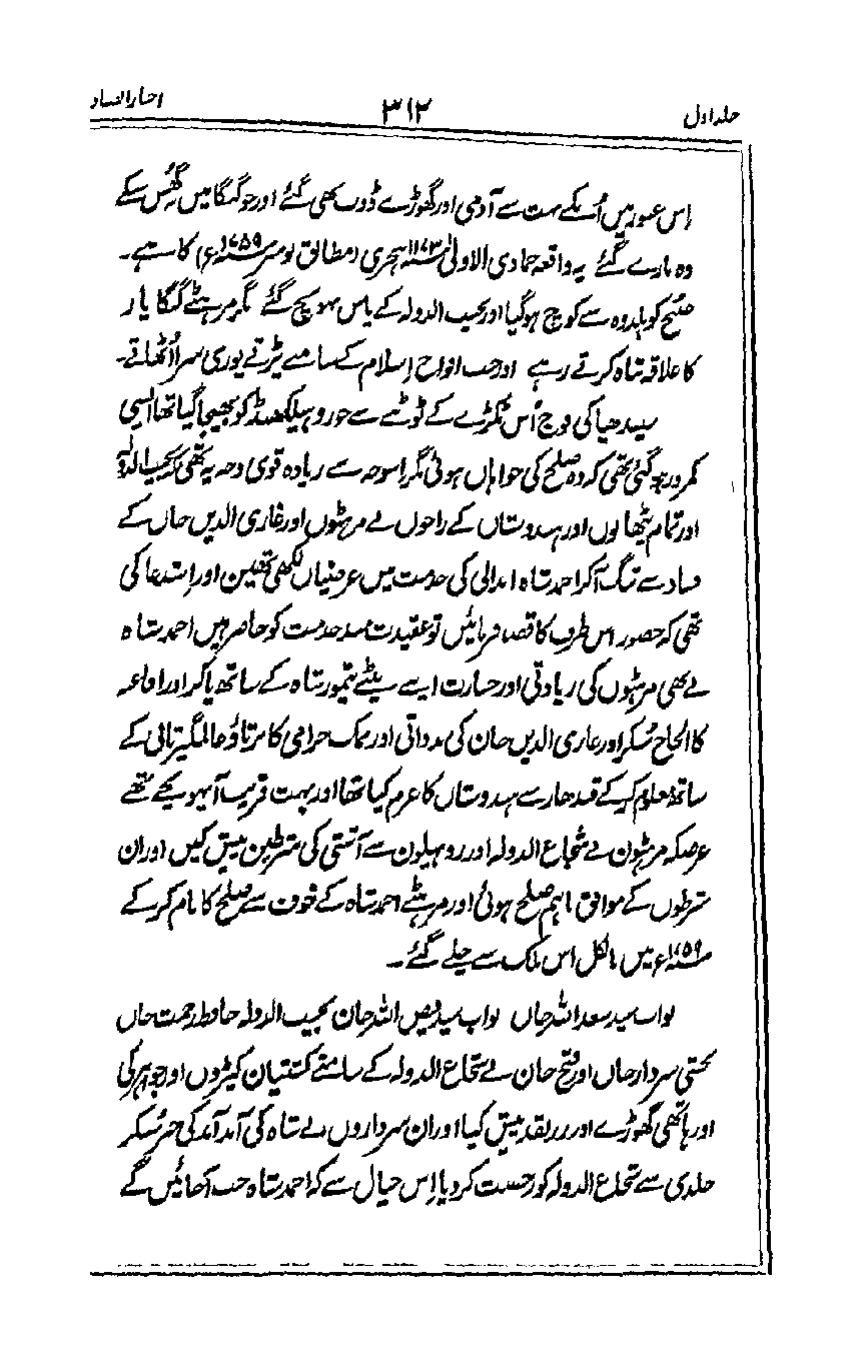 جلد اول ۳۱۲ اخبار الصنادید
اس عبور میں اُنکے بہت سے آدمی اور گھوڑے ڈوب بھی گئے اور جو گنگا میں گھُس سکے
وہ مارے گئے یہ واقعہ جمادی الاولیٰ ۱۱۷۳ ہجری (مطابق نومبر ۱۷۵۹ء) کا ہے۔
صبح کو ہلدوہ سے کوچ ہو گیا اور نجیب الدولہ کے پاس پہونچ گئے مگر مرہٹے گنگا پار
کا علاقہ تباہ کرتے رہے اور جب افواج اسلام کے سامنے پڑتے پوری سزا اُٹھاتے۔
سیندھیا کی فوج اُس ٹکڑے کے ٹوٹنے سے جو روہیلکھنڈ کو بھیجا گیا تھا ایسی
کمزور ہو گئی تھی کہ وہ صلح کی خواہاں ہوئی مگر اس وجہ سے زیادہ قوی وجہ یہ تھی کہ نجیب الدولہ
اور تمام پٹھانوں اور ہندوستان کے راجوں نے مرہٹوں اور غازی الدین خاں کے
فساد سے تنگ آکر احمد شاہ ابدالی کی خدمت میں عرضیاں لکھی تھیں اور استدعا کی
تھی کہ حضور اس طرف کا قصد فرمائیں تو عقیدت مند خدمت کو حاضر ہیں احمد شاہ
نے بھی مرہٹوں کی زیادتی اور جسارت اپنے بیٹے تیمور شاہ کے ساتھ پاکر اور افاغنہ
کا الحاح سُنکر اور غازی الدین خان کی بدذاتی اور نمک حرامی کا برتاؤ عالمگیر ثانی کے
ساتھ معلوم کرکے قندھار سے ہندوستاں کا عزم کیا تھا اور بہت قریب آپہونچے تھے
غرضکہ مرہٹون نے شجاع الدولہ اور روہیلون سے آشتی کی شرطین پیش کیں اور ان
شرطوں کے موافق باہم صلح ہوئی اور مرہٹے احمد شاہ کے خوف سے صلح کا نام کرکے
۱۷۵۹ء میں بالکل اس ملک سے چلے گئے۔
نواب سید سعد اللہ خاں نواب سید فیض اللہ خان نجیب الدولہ حافظ رحمت خاں
بخشی سردار خاں اور فتح خان نے شجاع الدولہ کے سامنے کشتیان کپڑوں اور جواہر کی
اور ہاتھی گھوڑے اور زر نقد پیش کیا اور ان سرداروں نے شاہ کی آمد آمد کی خبر سُنکر
جلدی سے شجاع الدولہ کو رخصت کر دیا اِس خیال سے کہ احمد شاہ جب آجائیں گے